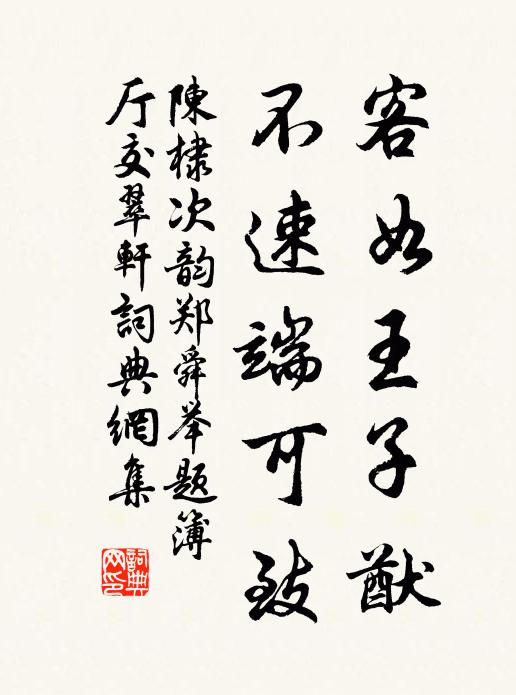 客如王子猷
不速端可致
陳棣次韵郑舜举题簿
厅交翠軒詞典網集
詞典网印